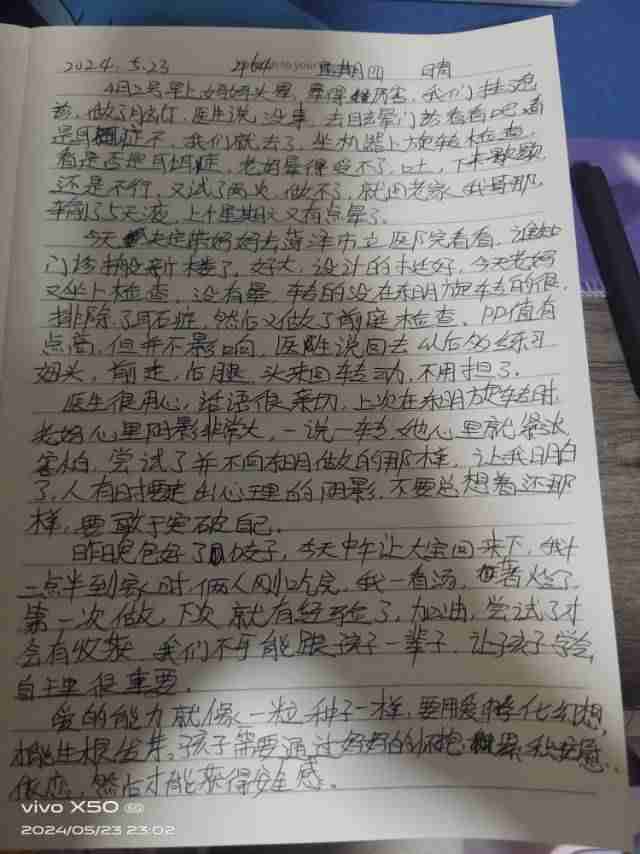 2024.5.23 星期四 晴
4月2号早上妈妈头晕,晕得厉害,我们挂号
做了,医生说没事,去耳鼻门诊看看吧,看
是耳石症不,我们就去了,坐机器上旋转检查,
看是否是耳石症,老妈晕得受不了,吐,下来歇歇
还是不行,又试了两次,做不了,就回老家我哥那
输了5天液,上个星期又有点晕了。
今天决定带妈妈去菏泽市立医院看看,
门诊搬新楼了,好大,设计的挺好,今天老妈
又坐上检查,没有晕,转的没在东明旋转的很,
排除了耳石症,然后又做了前庭检查,PD值有
点高,但并不影响,医生说回去以后多练习
抬头,前走,后退,头来回转动,不用担心了。
医生很用心,话语很亲切,上次在东明旋转时
老妈心里阴影非常大,一说一转,她心里就
害怕,尝试了并不向东明做的那样,让我明白
了,人有时要走出心理的阴影,不要总想着还那
样,要敢于突破自己。
昨晚包好了饺子,今天中午让大宝回来下,我十
二点半到家时,俩人刚吃完,我一看汤,煮烂了
第一次做,下次就有经验了,加油,尝试了才
会有收获,我们不可能跟孩子一辈子,让孩子学会
自主很重要。
爱的能力就像一粒种子一样,要用爱
才能生根发芽。孩子需要通过妈妈的怀抱
依恋,然后才能获得安全感。
vivo X50 5G
2024/05/23 23:02